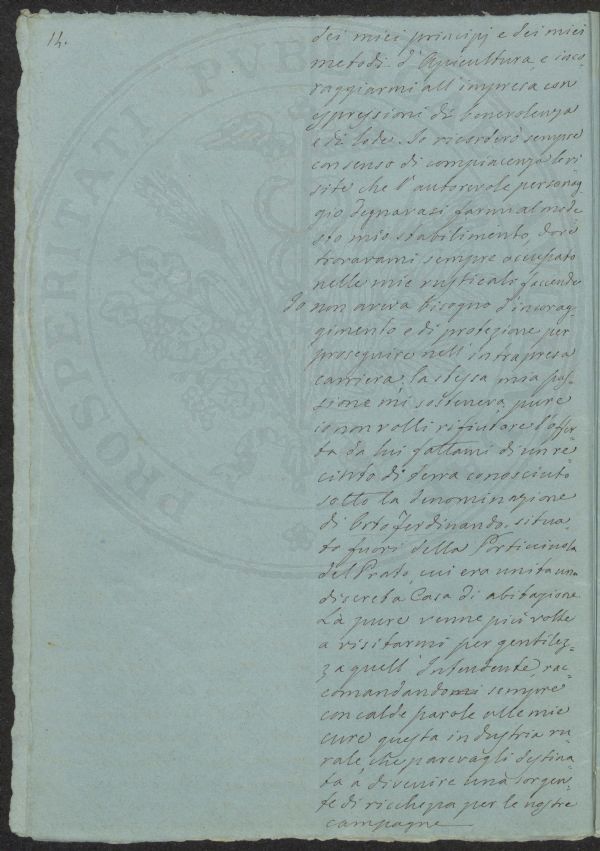 14.
dei miei principj e dei miei
metodi d'Apicultura e inco-
raggiarmi all'impresa con
espressioni di benevolenza
e di lode. Io ricorderò sempre
con senso di compiacenza le vi
site che l'autorevole personag-
gio degnavasi farmi al mode
sto mio stabilimento, dove
trovavami sempre occupato
nelle mie rusticali faccende
Io non aveva bisogno d'incorag-
gimento e di protezione per
proseguire nell'intrapresa
carriera, la stessa mia pas-
sione mi sosteneva, pure
io non volli rifiutare l'offer-
ta da lui fattami di un re
cinto di terra conosciuto
sotto la denominazione
di Orto Ferdinando, situa
to fuori della Porticciuola
del Prato, cui era unita una
discreta Casa di abitazione
Là pure venne più volte
a visitarmi per gentilez-
za quell'Intendente, rac-
comandandomi sempre
con calde parole alle mie
cure questa industria ru-
rale, che parevagli destina-
ta a divenire una sorgen-
te di ricchezza per le nostre
campagne
PROSPERITATI PUBL